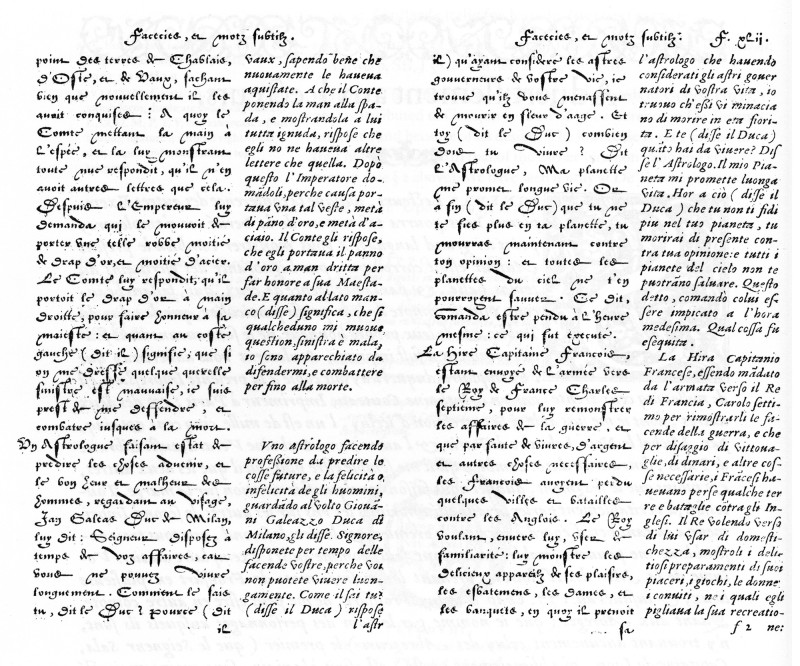 Facecies, et motz subtilz.
point des terres de Chablais,
d'Oste, et de Vaux, sachant
bien que nouvellement il les
auoit conquises : A quoy le
Comte mettant la main à
l'espée, et la luy monstrant
toute nue respondit, qu'il n'en
auoit autres lettres que cela.
Despuis l'Empereur luy
demanda qui le mouuoit de
porter vne telle robbe moitie
de drap d'or, et moitie d'acier.
Le Comte luy respondit, qu'il
portoit le drap d'or à main
droitte, pour faire honneur à sa
maiesté : et quant au costé
gauche (dit il) signifie, que si
on me dresse quelque querelle
sinistre, est mauuaise, ie suis
prest de me deffendre, et
combatre iusques à la mort.
Vn Astrologue faisant estat de
predire les choses aduenir, et
le bon heur et malheur des
hommes, regardant au visage,
Jan Galeas Duc de Milan,
luy dit : Seigneur disposez à
temps de voz affaires, car
vous ne pouuez viure
longuement. Comment le sais
tu, dit le Duc ? pource (dit
il
vaux, sapendo bene che
nuouamente le haueua
aquistate. A che il Conte
ponendo la man alla spa-
da, e mostrandola a lui
tutta ignuda, rispose che
egli no ne haueua altre
lettere che quella. Dopo
questo l'Imperatore do-
mādoli, perche causa por-
taua vna tal veste, metà
di pano d'oro, e metà d'a-
ciaio. Il Conte gli rispose,
che egli portaua il panno
d'oro a man dritta per
far honore a sua Maesta-
de. E quanto al lato man-
co (disse) significa, che si
qualcheduno mi muoue
question, sinistra è mala,
io sono apparechiato da
difendermi, e combattere
per fino alla morte.
Vno astrologo facendo
professione da predire le
cosse future, e la felicità o
infelicità de gli huomini,
guardādo al volto Giouā-
ni Galeazzo Duca di
Milano, gli disse. Signore,
disponete per tempo delle
facende vostre, perche voi
non puotete viuere luon-
gamente. Come il sai tu?
(disse il Duca) rispose
l'astr
Facecies, et motz subtilz. F. xlii.
il) qu'ayant consideré les astres
gouuerneurs de vostre vie, ie
trouue qu'ilz vous menassent
de mourir en fleur d'aage. Et
toy (dit le Duc) combien
dois tu viure ? Dit
l'Astrologue, Ma planette
me promet longue vie. Or
à fin (dit le Duc) que tu ne
te fies plus en ta planette, tu
mourras maintenant contre
ton opinion : et toutes les
planettes du ciel ne t'en
pourroyent sauuer. Ce dit,
comanda estre pendu à l'heure
mesme : ce qui fut executé.
La Hire Capitaine Francois,
estant enuoyé de l'armée vers
le Roy de France Charles
septiéme, pour luy remonstrer
les affaires de la guerre, et
que par faute de viures, d'argent
et autres choses necessaires,
les Francois auoyent perdu
quelques villes et batailles
contre les Anglois. Le Roy
voulant, enuers luy, vser de
familiarité : luy monstre les
delicieux appareilz de ses plaisirs,
les esbatemens, les dames, et
les banquets, en quoy il prenoit
sa
l'astrologo che hauendo
considerati gli astri gouer
natori di vostra vita, io
truouo che essi vi minacia
no di morire in eta fiori-
ta. E te (disse il Duca)
quāto hai da viuere? Dis
se l'Astrologo. Il mio Pia-
neta mi promette luonga
vita. Hor a ciò (disse il
Duca) che tu non ti fidi
piu nel tuo pianeta, tu
morirai di presente con-
tra tua opinione: e tutti i
pianete del cielo non te
puotrāno saluare. Questo
detto, comandò colui es-
sere impicato a l'hora
medesima. Qual cossa fu
eseguita.
La Hira Capitanio
Francese, essendo mādato
da l'armata verso il Re
di Francia, Carolo setti-
mo per rimostrarli le fa-
cende della guerra, e che
per disaggio di vittoua-
glie, di dinari, e altre cos-
se necessarie, i Frācesi ha-
ueuano perse qualche ter
re e bataglie cōtra gli In-
glesi. Il Re volendo verso
di lui vsar di domesti-
chezza, mostroli i deli-
tiosi preparamenti di suoi
piaceri, i giochi, le donne,
i conuiti, ne i quali egli
pigliaua la sua recreatio-
f 2 ne: